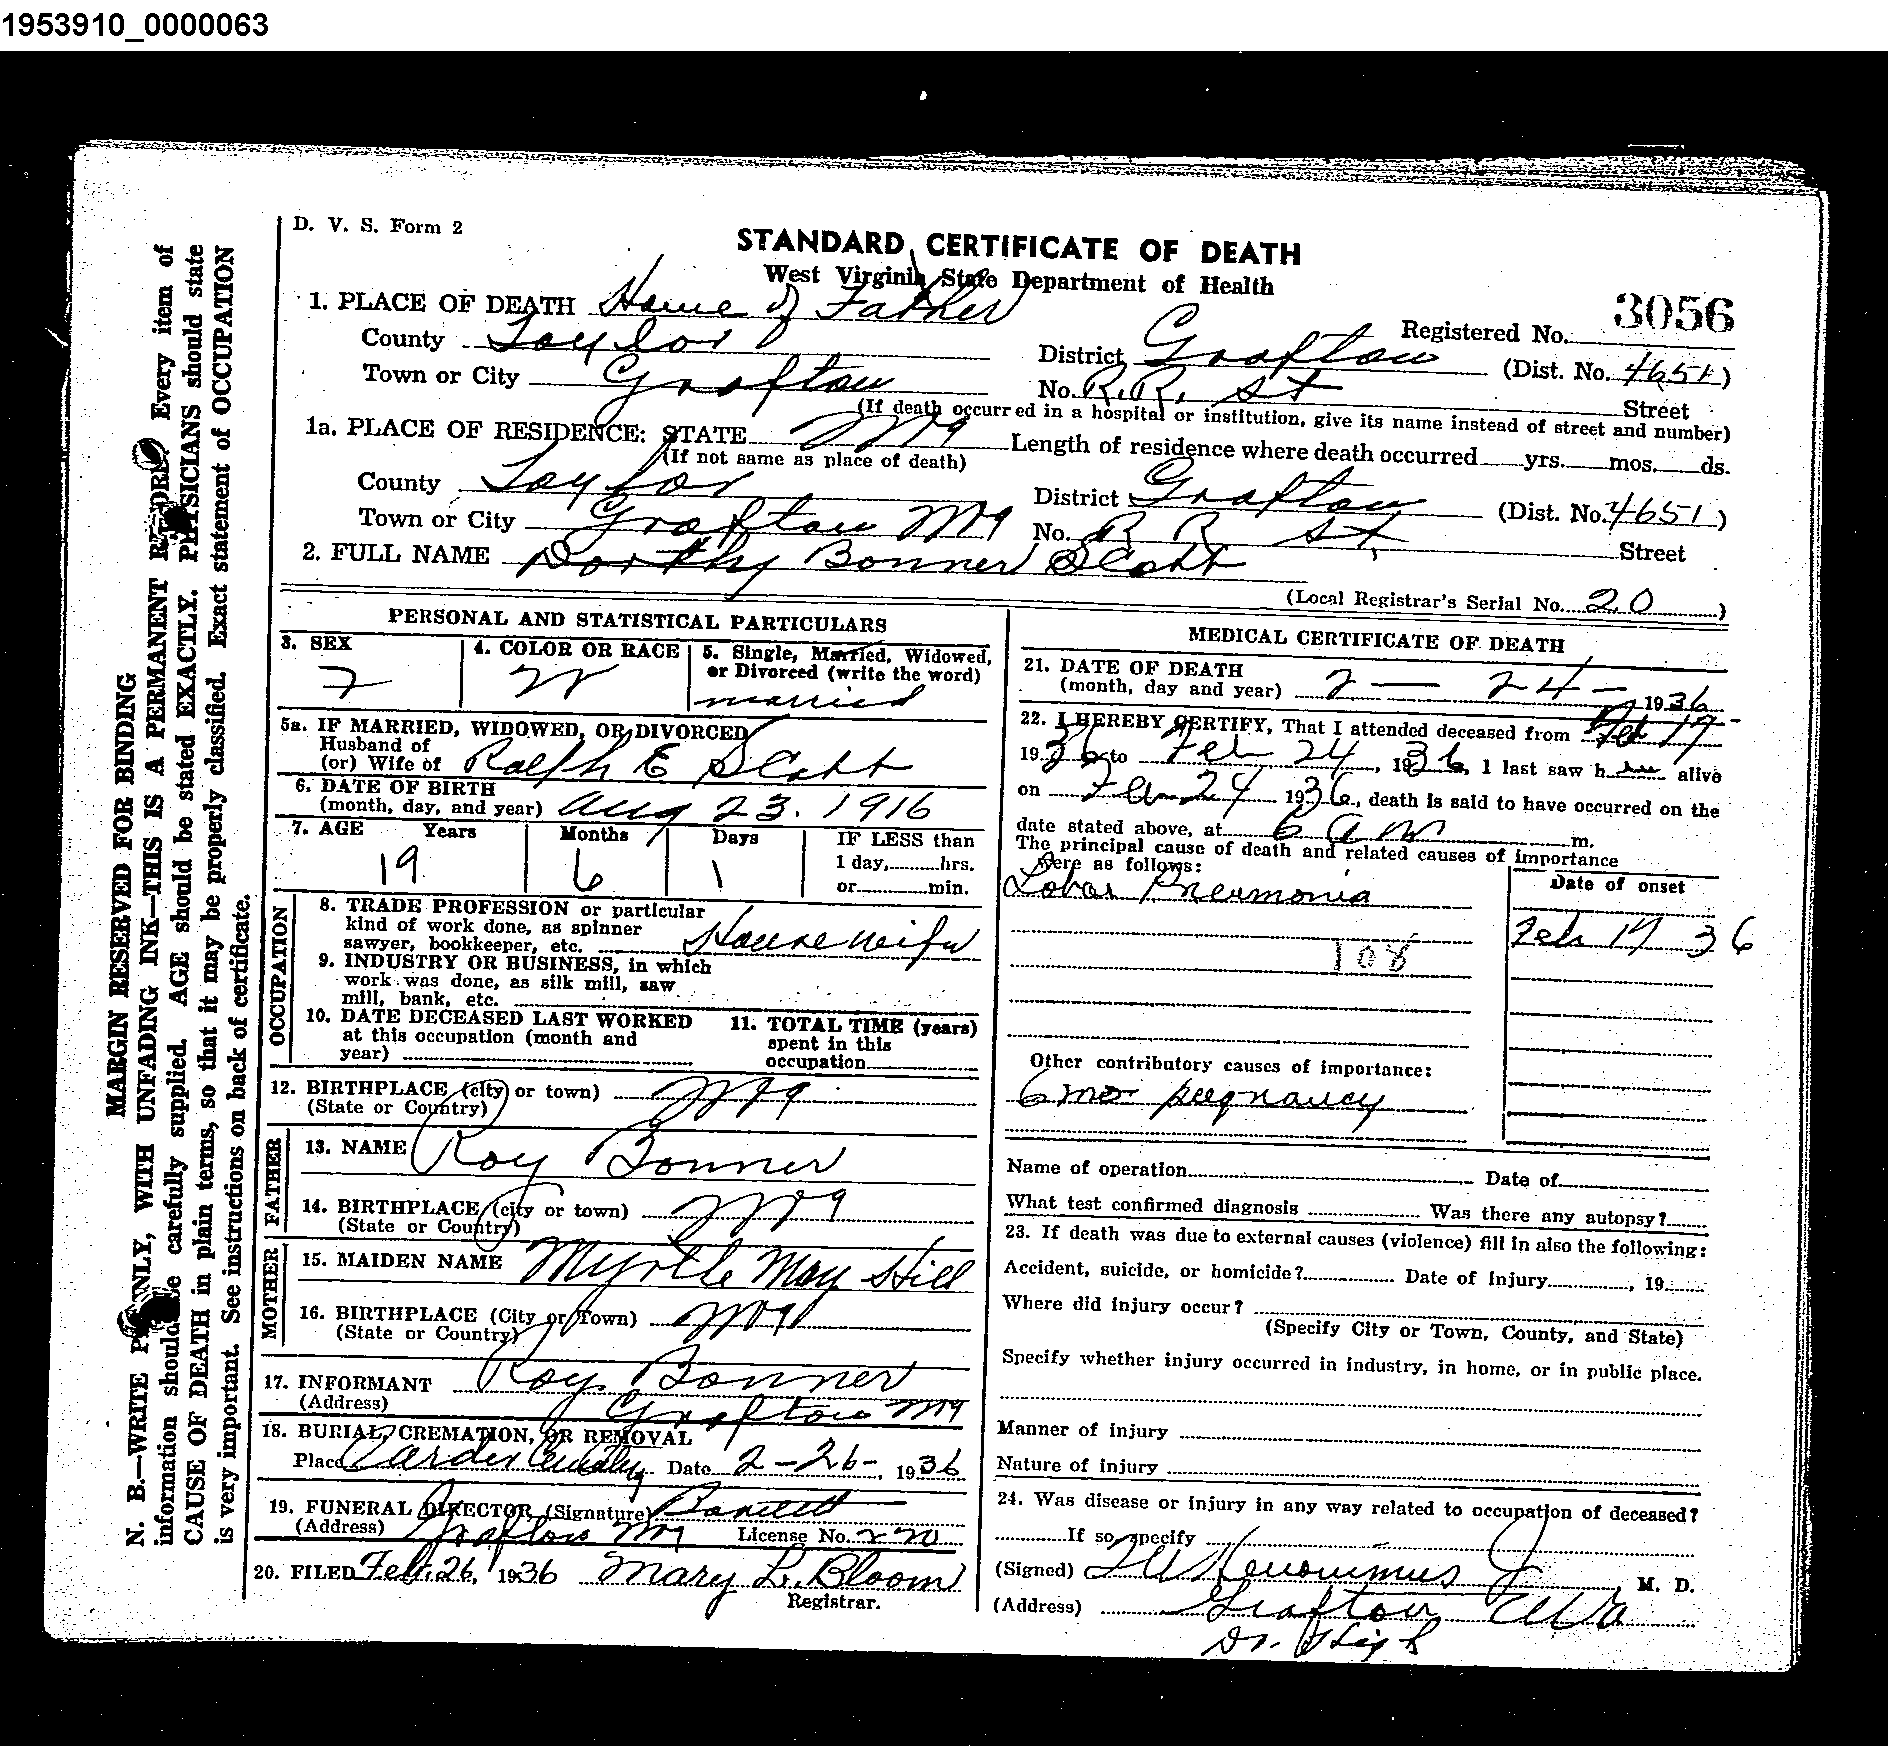 1953910_0000063
D. V. S. Form 2
STANDARD CERTIFICATE OF DEATH
West Virginia State Department of Health
1. PLACE OF DEATH Home of Father
Registered No. 3056
County Taylor District Grafton (Dist. No. 4651)
Town or City Grafton No. R.R. St Street
(If death occurred in a hospital or institution, give its name instead of street and number)
1a. PLACE OF RESIDENCE: STATE WVa Length of residence where death occurred yrs. mos. ds.
(If not same as place of death)
County Taylor District Grafton (Dist. No. 4651)
Town or City Grafton WVa No. R R St. Street
2. FULL NAME Dorthy Bonner Scott
(Local Registrar's Serial No. 20)
PERSONAL AND STATISTICAL PARTICULARS
3. SEX F
4. COLOR OR RACE W
5. Single, Married, Widowed, or Divorced (write the word)
married
5a. IF MARRIED, WIDOWED, OR DIVORCED
Husband of
(or) Wife of Ralph E Scott
6. DATE OF BIRTH
(month, day, and year) Aug 23. 1916
7. AGE Years Months Days IF LESS than
19 6 1 1 day, hrs.
or min.
OCCUPATION
8. TRADE PROFESSION or particular
kind of work done, as spinner
sawyer, bookkeeper, etc. Housewife
9. INDUSTRY OR BUSINESS, in which
work was done, as silk mill, saw
mill, bank, etc.
10. DATE DECEASED LAST WORKED
at this occupation (month and
year)
11. TOTAL TIME (years)
spent in this
occupation
12. BIRTHPLACE (city or town) WVa
(State or Country)
FATHER
13. NAME Roy Bonner
14. BIRTHPLACE (city or town) WVa
(State or Country)
MOTHER
15. MAIDEN NAME Myrtle May Hill
16. BIRTHPLACE (City or Town) WVa
(State or Country)
17. INFORMANT Roy Bonner
(Address) Grafton WVa
18. BURIAL, CREMATION, OR REMOVAL
Place Carder Cemetery Date 2-26-, 1936
19. FUNERAL DIRECTOR (Signature)
(Address) Grafton WVa License No. 220
20. FILED Feb. 26, 1936 Mary L. Bloom
Registrar.
MEDICAL CERTIFICATE OF DEATH
21. DATE OF DEATH
(month, day and year) 2 — 24 — 1936
22. I HEREBY CERTIFY, That I attended deceased from Feb 17
1936 to Feb 24, 1936, I last saw her alive
on Feb 24 1936, death is said to have occurred on the
date stated above, at 6 am m.
The principal cause of death and related causes of importance
were as follows:
Date of onset
Lobar Pneumonia
Feb 17 36
108
Other contributory causes of importance:
6 mos pregnancy
Name of operation Date of
What test confirmed diagnosis Was there any autopsy?
23. If death was due to external causes (violence) fill in also the following:
Accident, suicide, or homicide? Date of Injury , 19
Where did injury occur?
(Specify City or Town, County, and State)
Specify whether injury occurred in industry, in home, or in public place.
Manner of injury
Nature of injury
24. Was disease or injury in any way related to occupation of deceased?
If so, specify
(Signed) M. D.
(Address) Grafton WVa
MARGIN RESERVED FOR BINDING
N. B.—WRITE PLAINLY, WITH UNFADING INK—THIS IS A PERMANENT RECORD. Every item of
information should be carefully supplied. AGE should be stated EXACTLY. PHYSICIANS should state
CAUSE OF DEATH in plain terms, so that it may be properly classified. Exact statement of OCCUPATION
is very important. See instructions on back of certificate.